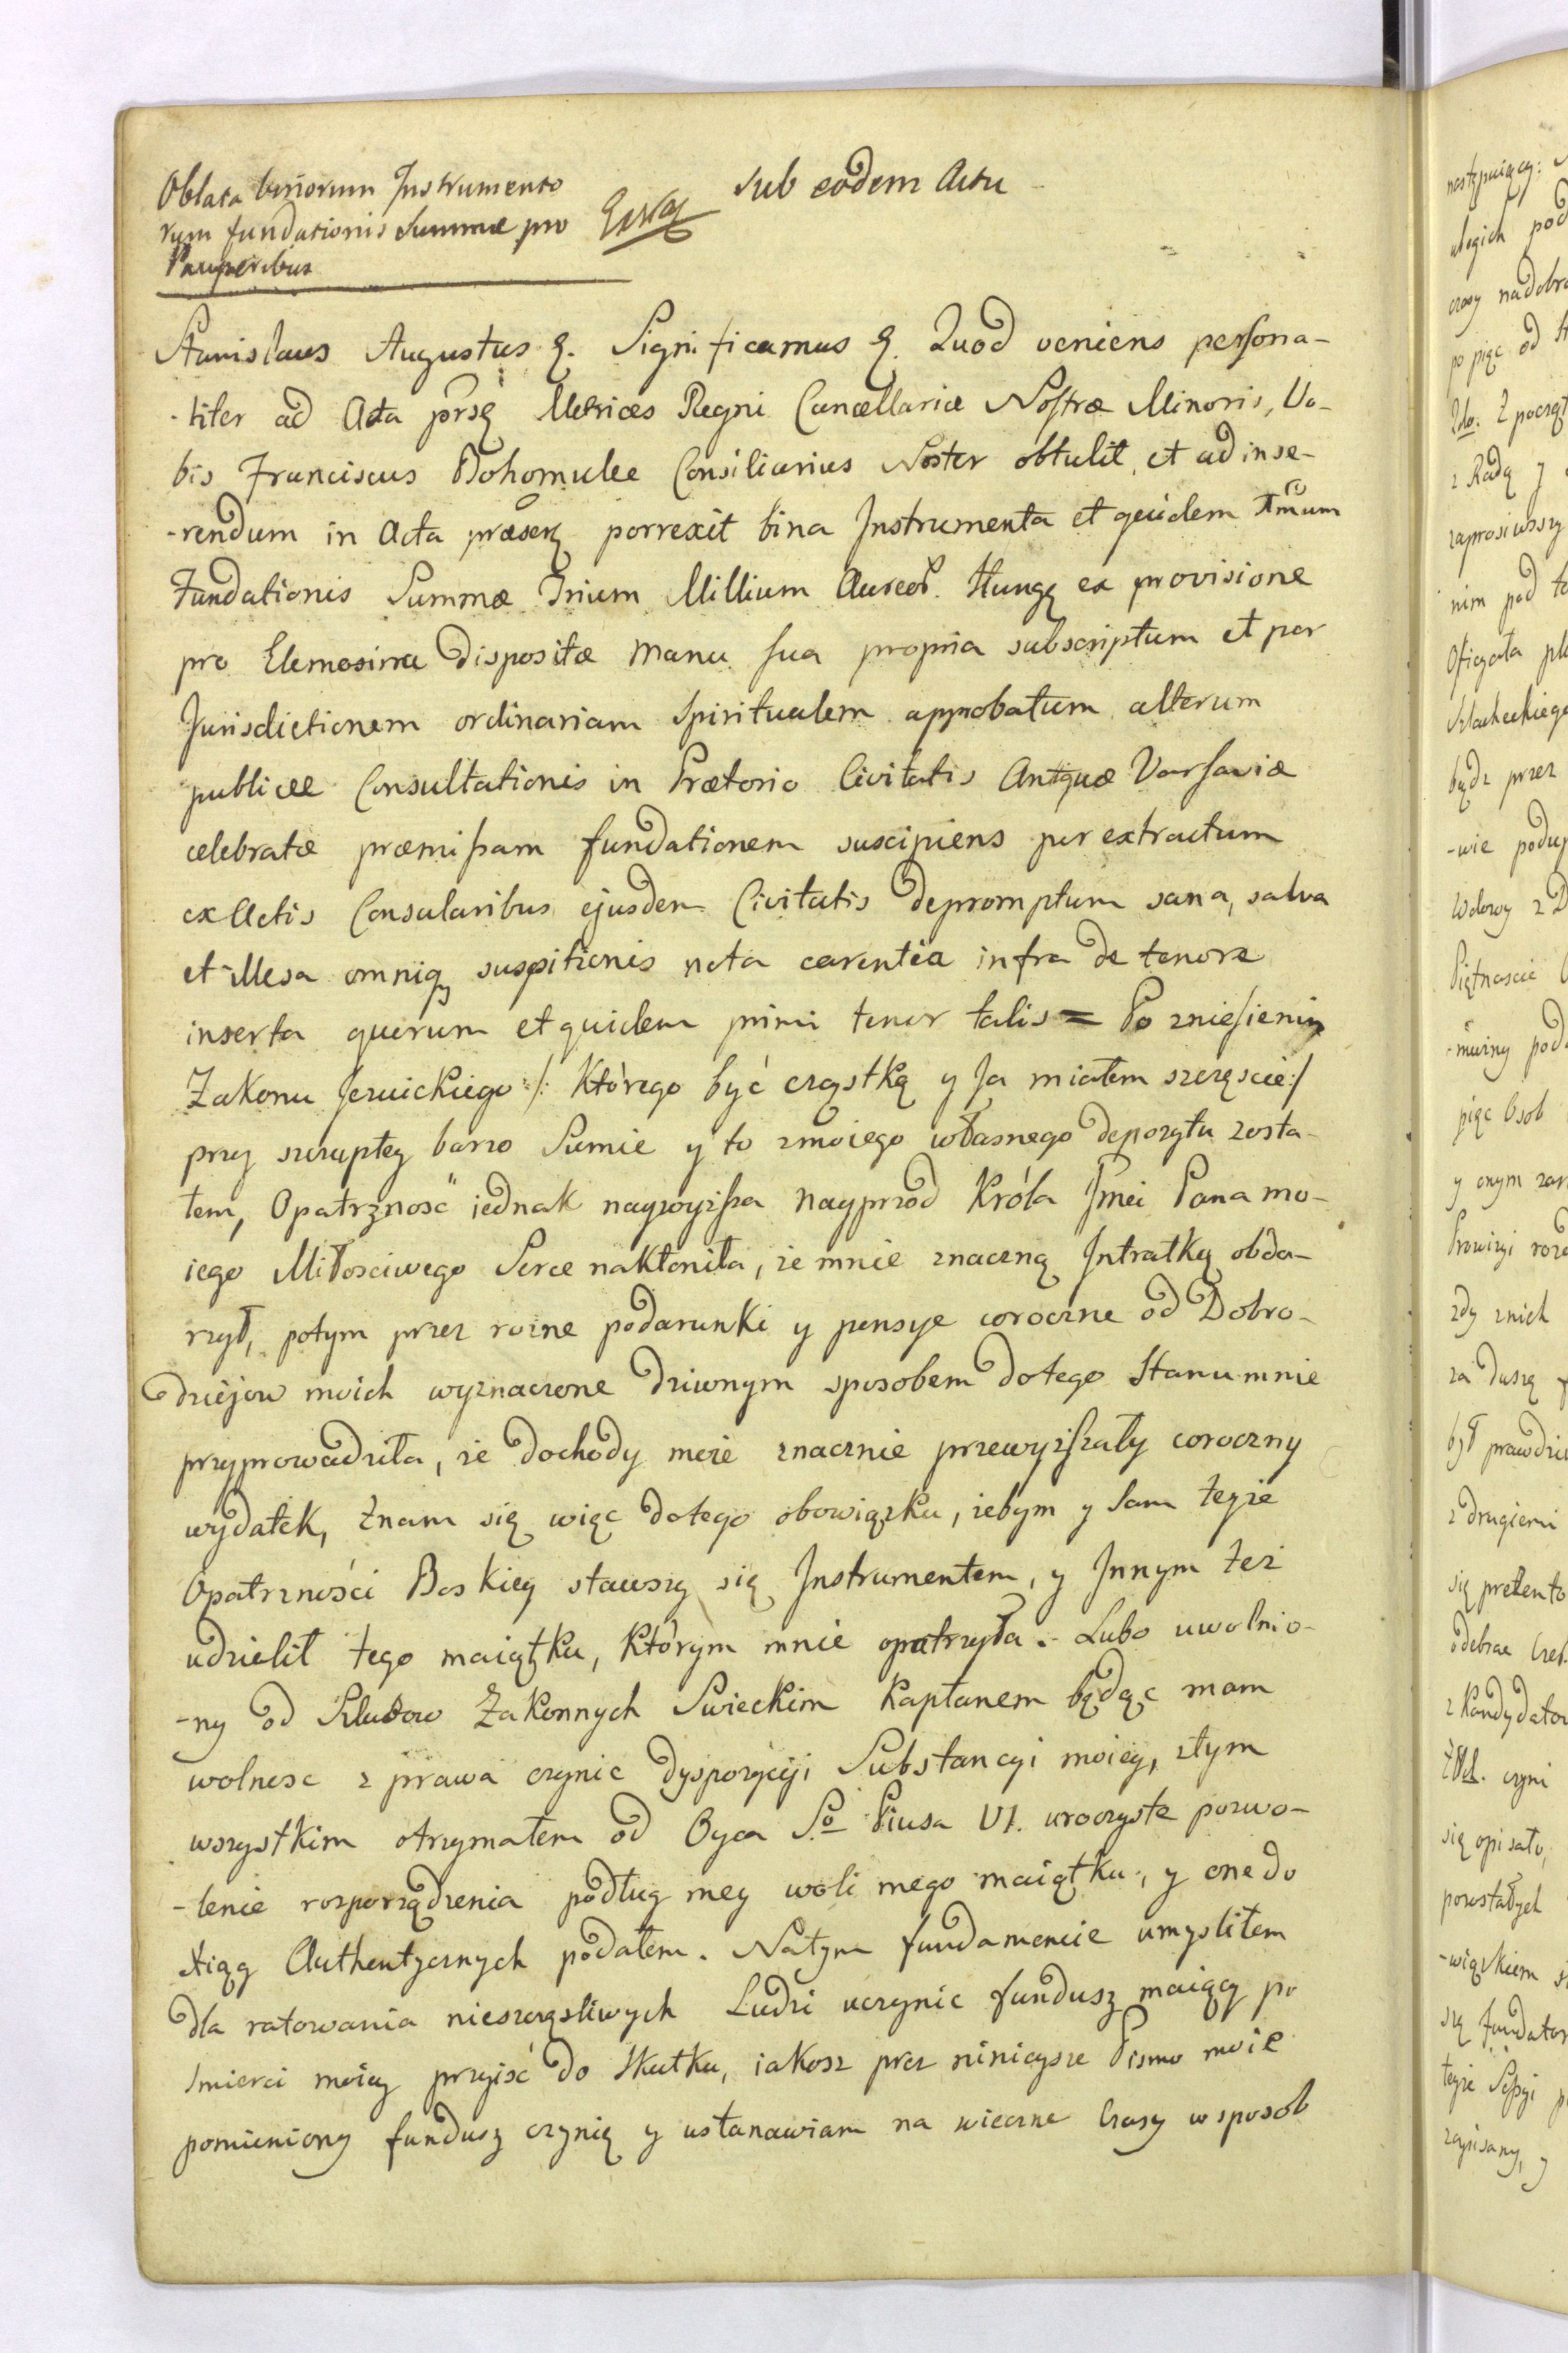 Oblata binorum Instrumento
rum fundationis Summæ pro
Pauperibus
Sub eodem Actu
Stanislaus Augustus &. Significamus &. Quod veniens persona-
-liter ad Acta prsę Metrices Regni Cancellariæ Nostræ Minoris, Vo-
bis Franciscus Bohomulec Consiliarius Noster obtulit, et ad inse-
-rendum in Acta præseñ porrexit bina Instrumenta et quidem
Fundationis Summæ Trium Millium Aureor. Hungę ex provisione
pro Elemosina dispositæ manu sua propria subscriptum et per
Jurisdictionem ordinariam Spiritualem approbatum, alterum
publicæ Consultationis in Prætorio Civitatis Antquæ Varsaviæ
celebratæ præmissam fundationem suscipiens per extractum
ex Actis Consularibus ejusdem Civitatis depromptum sana, salva
et illesa omniqz suspitionis nota carentia infra de tenore
inserta quorum et quidem primi tenor talis = Po zniesieniu
Zakonu Jezuickiego /: Którego być cząstką y Ja miałem szczęscie:/
przy szczupłey barzo Sumie y to zmoiego własnego depozytu zosta-
łem, Opatrzność iednak naywyższa nayprzod Króla Jmci Pana mo-
iego Miłosciwego Serce nakłoniła, że mnie znaczną Intratką obda-
rzył, potym przez rozne podarunki y pensye coroczne od Dobro-
dziejow moich wyznaczone dziwnym sposobem dotego Stanu mnie
przyprowadziła, że dochody moie znacznie przewyższały coroczny
wydatek, Znam się więc dotego obowiązku, żebym y Sam teyże
Opatrzności Boskiey stawszy się Instrumentem, y Innym też
udzielił tego maiątku, którym mnie opatrzyła. Lubo uwolnio-
-ny od Slubow Zakonnych Swieckim Kapłanem będąc mam
wolnosc z prawa czynic dyspozycyi Substancyi moiey, ztym
wszystkim otrzymałem od Oyca So Piusa VI. uroczyste pozwo-
-lenie rozporządzenia podług mey woli mego maiątku, y one do
Xiąg Authentycznych podałem. Natym fundamencie umysliłem
dla ratowania nieszczęsliwych Ludzi uczynic fundusz maiący po
smierci moiey przyisć do Skutku, iakosz prez ninieysze Pismo moie
pomieniony fundusz czynię y ustanawiam na wieczne Czasy w sposob